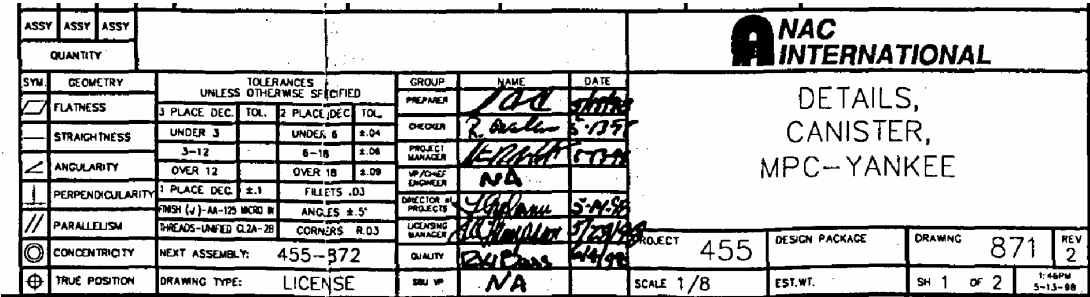 ASSY ASSY ASSY
QUANTITY
NAC
INTERNATIONAL
SYM. GEOMETRY
FLATNESS
STRAIGHTNESS
ANGULARITY
PERPENDICULARITY
PARALLELISM
CONCENTRICITY
TRUE POSITION
TOLERANCES
UNLESS OTHERWISE SPECIFIED
3 PLACE DEC. TOL. 2 PLACE DEC TOL.
UNDER 3 UNDER 6 ±.04
3-12 6-18 ±.06
OVER 12 OVER 18 ±.09
1 PLACE DEC. ±.1 FILLETS .03
FINISH (√)-AA-125 MICRO IN ANGLES ±.5°
THREADS-UNIFIED CL2A-2B CORNERS R.03
NEXT ASSEMBLY: 455-872
DRAWING TYPE: LICENSE
GROUP NAME DATE
PREPARER
CHECKER R. 5-13-98
PROJECT MANAGER
VP/CHIEF ENGINEER NA
DIRECTOR of PROJECTS 5-14-98
LICENSING MANAGER Thompson
QUALITY
SBU VP NA
DETAILS,
CANISTER,
MPC-YANKEE
PROJECT 455
DESIGN PACKAGE
DRAWING 871
REV 2
SCALE 1/8
EST.WT.
SH 1 OF 2
1:46PM
5-13-98